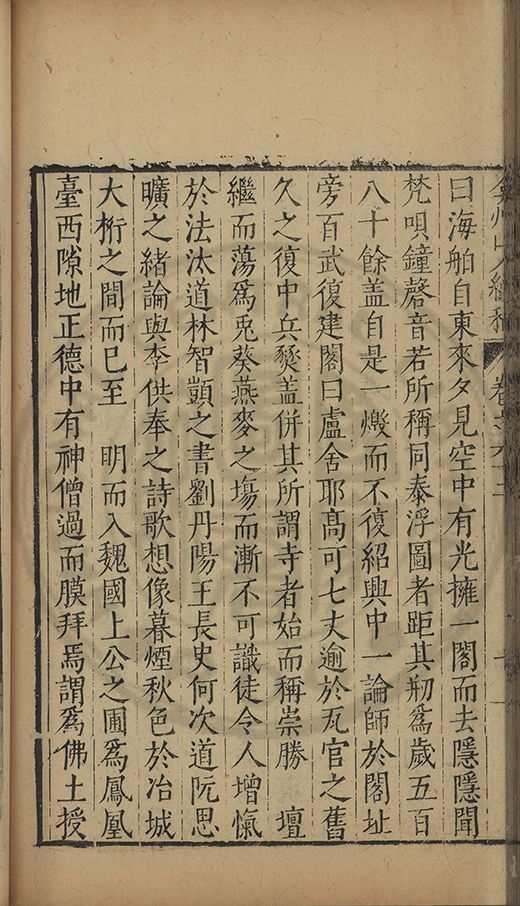 弇州山人續稿
卷之六十三
曰海舶自東來夕見空中有光擁一閣而去隱隱聞
梵唄鐘磬音若所稱同泰浮圖者距其刱爲歲五百
八十餘蓋自是一燬而不復紹興中一論師於閣址
旁百武復建閣曰盧舍耶高可七丈逾於瓦官之舊
久之復中兵燹蓋併其所謂寺者始而稱崇勝　壇
繼而蕩爲兎葵燕麥之塲而漸不可識徒令人增愾
於法汰道林智顗之書劉丹陽王長史何次道阮思
曠之緒論與李供奉之詩歌想像暮煙秋色於冶城
大桁之間而已至　明而入魏國上公之圃爲鳳凰
臺西隙地正德中有神僧過而膜拜焉謂爲佛土授